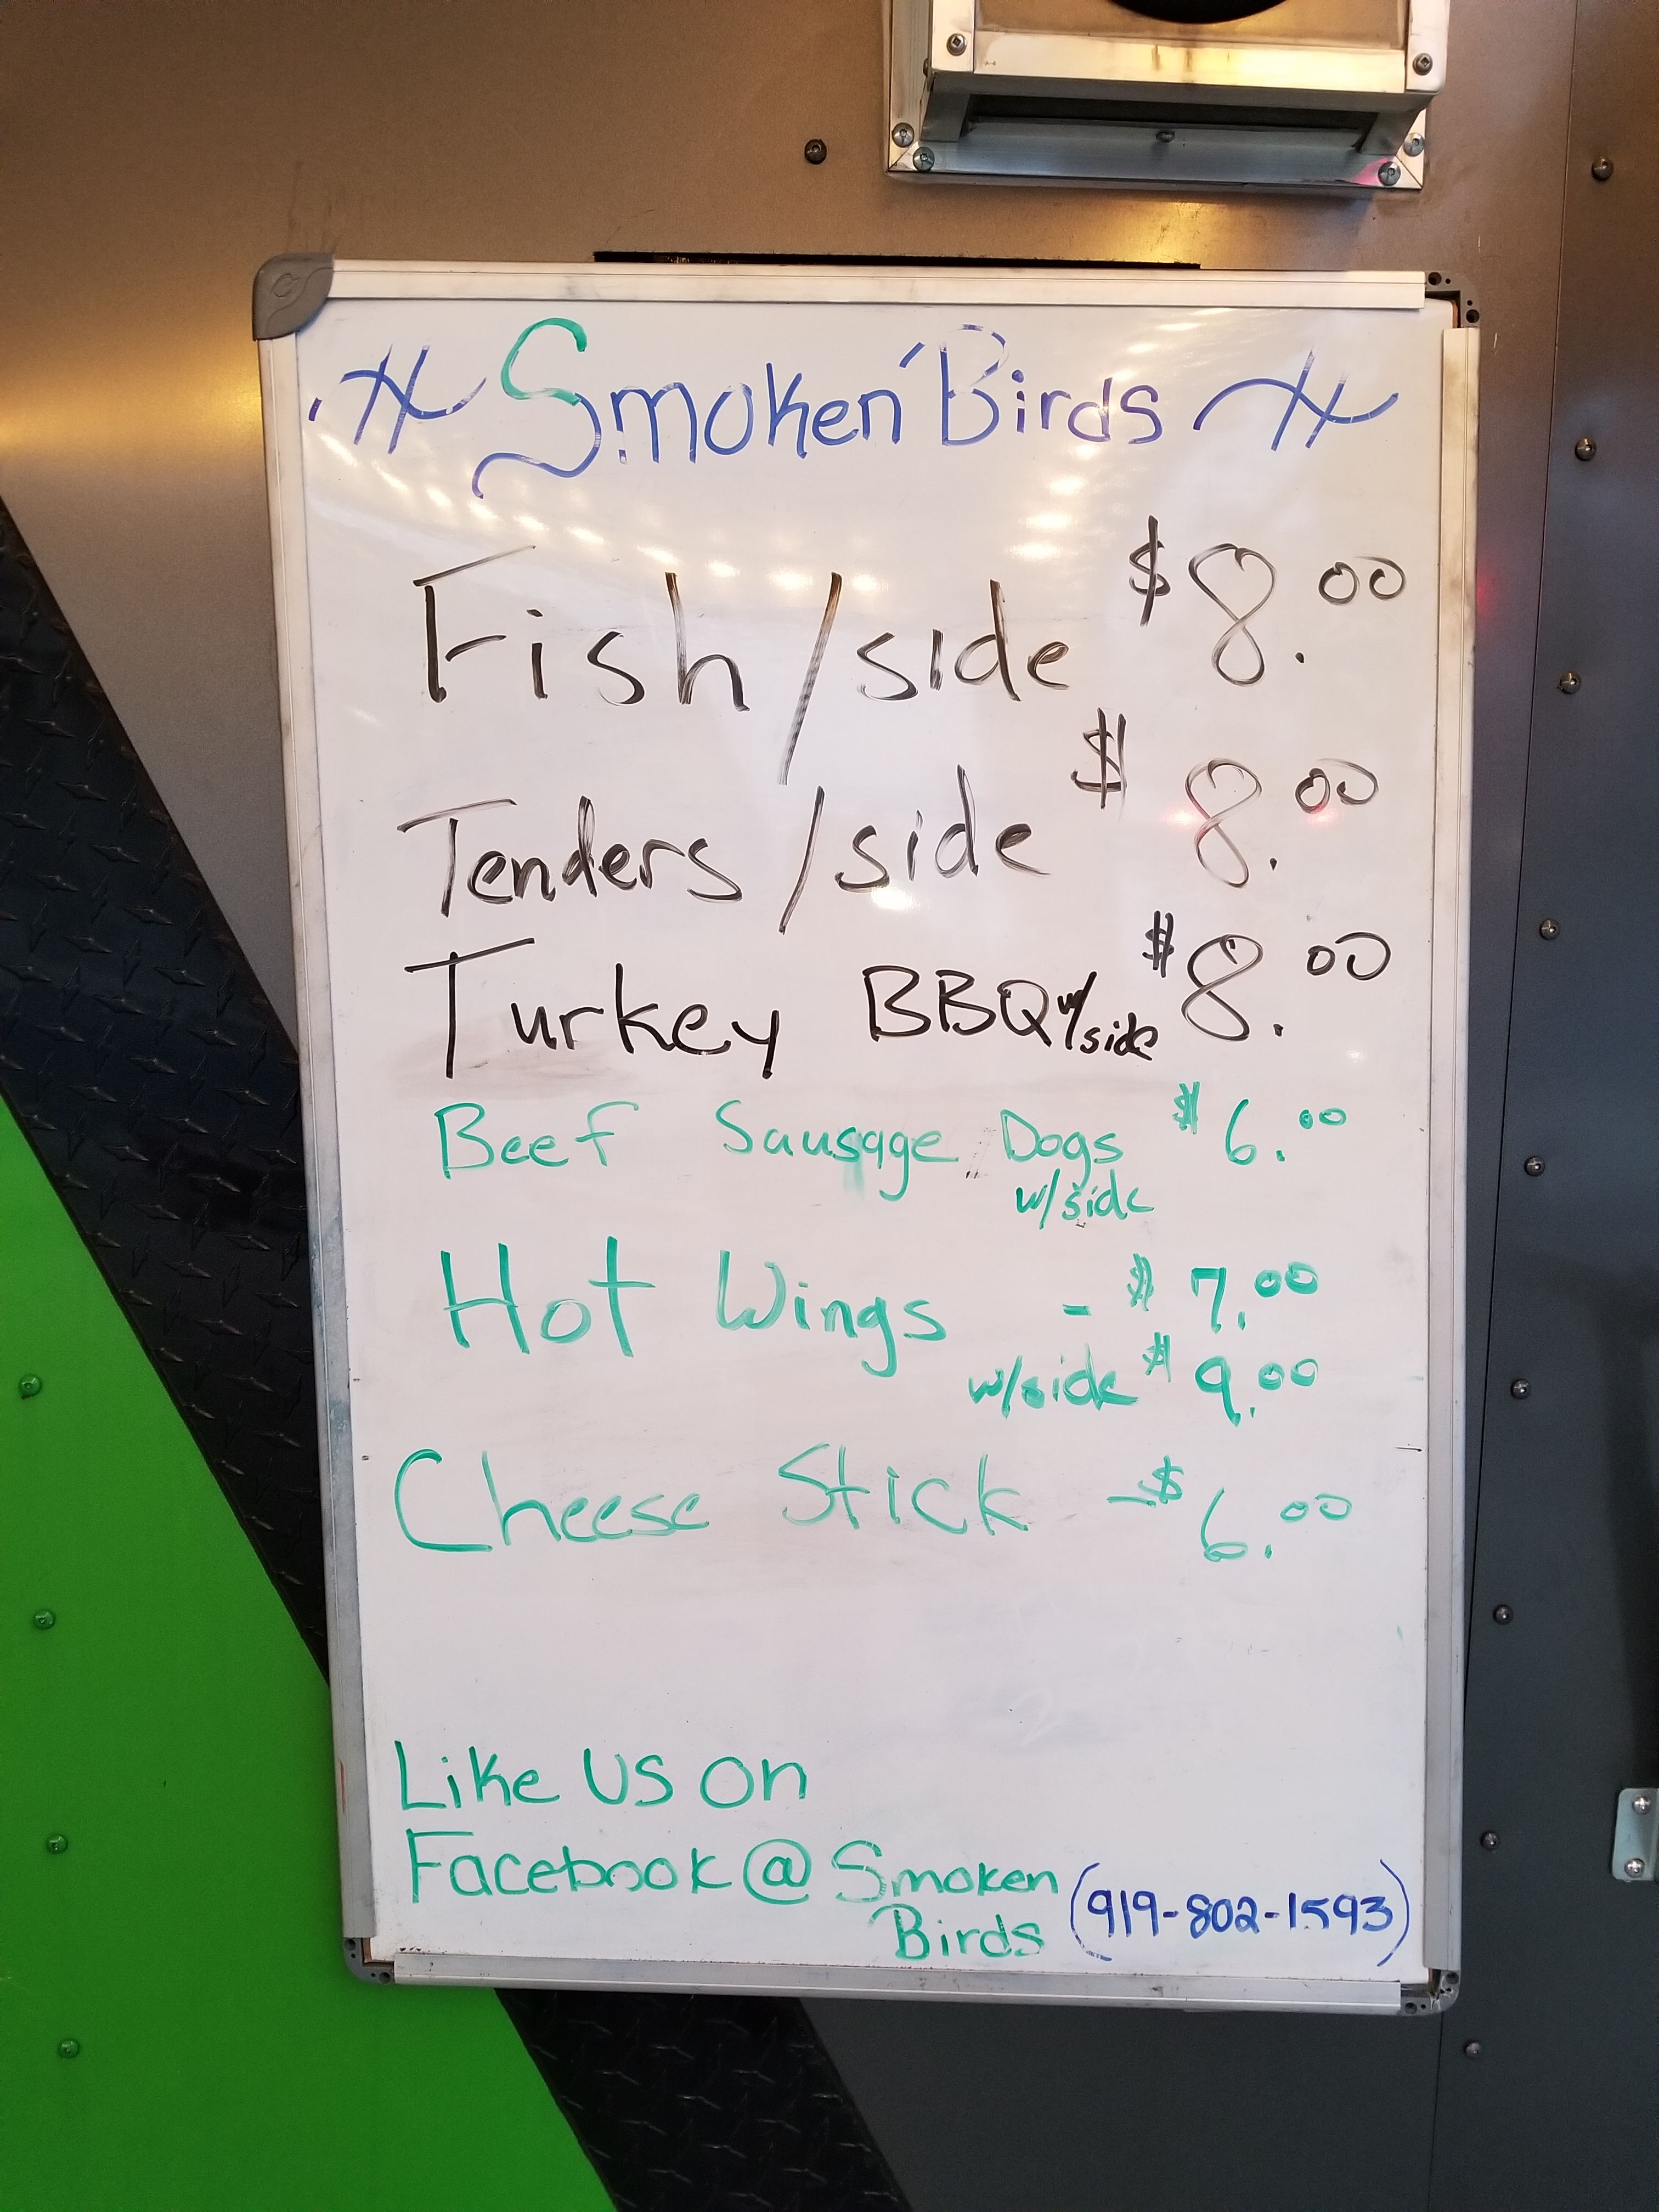 Smoken Birds
Fish/side $8.00
Tenders/side $8.00
Turkey BBQ w/side $8.00
Beef Sausage Dogs $6.00
w/side
Hot Wings - $7.00
w/side $9.00
Cheese Stick - $6.00
Like us on
Facebook @ Smoken
Birds (919-802-1593)